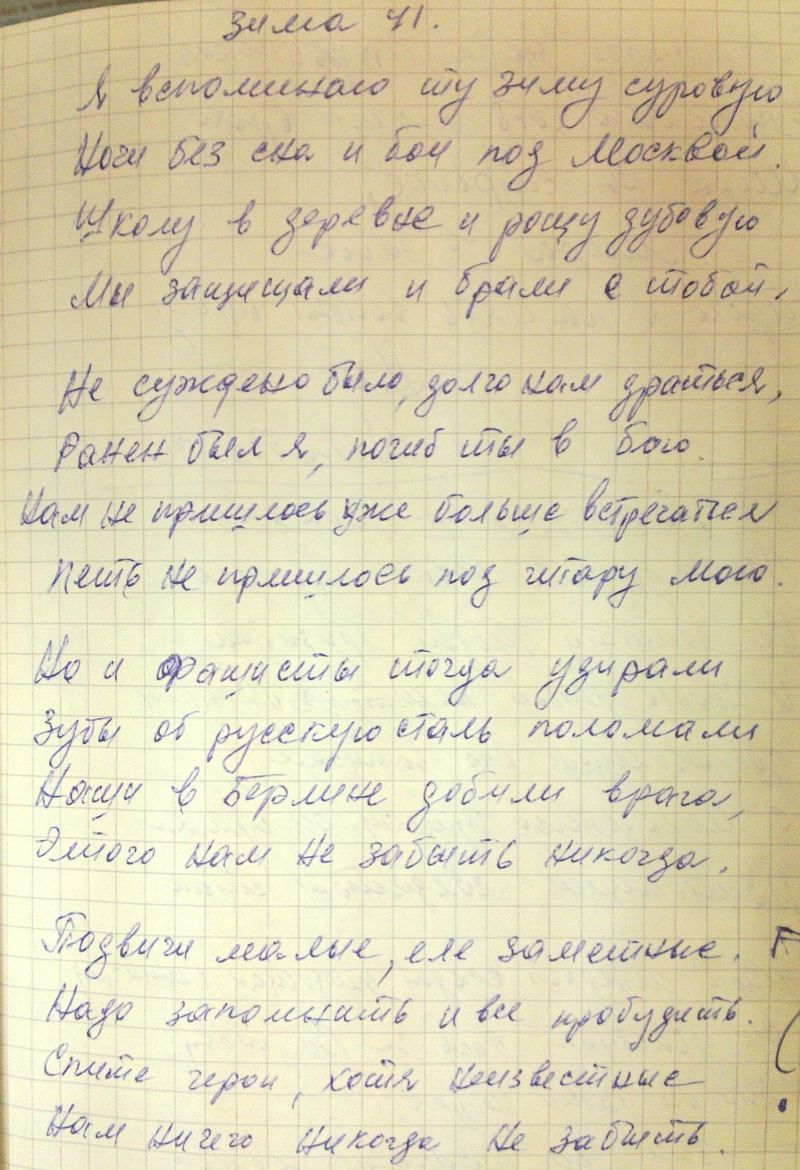 Зима 41.
Я вспоминаю ту зиму суровую
Ночи без сна и бои под Москвой.
Школу в деревне и рощу дубовую
Мы защищали и брали с тобой,
Не суждено было, долго нам драться,
Ранен был я, погиб ты в бою.
Нам не пришлось уже больше встречаться
Петь не пришлось под гитару мою.
Но и фашисты тогда удирали
Зубы об русскую сталь поломали
Наши в Берлине добили врага,
Этого нам не забыть никогда.
Подвиги малые, еле заметные.
Надо запомнить и все пробудить.
Спите герои, хотя неизвестные
Нам ничего никогда не забыть.